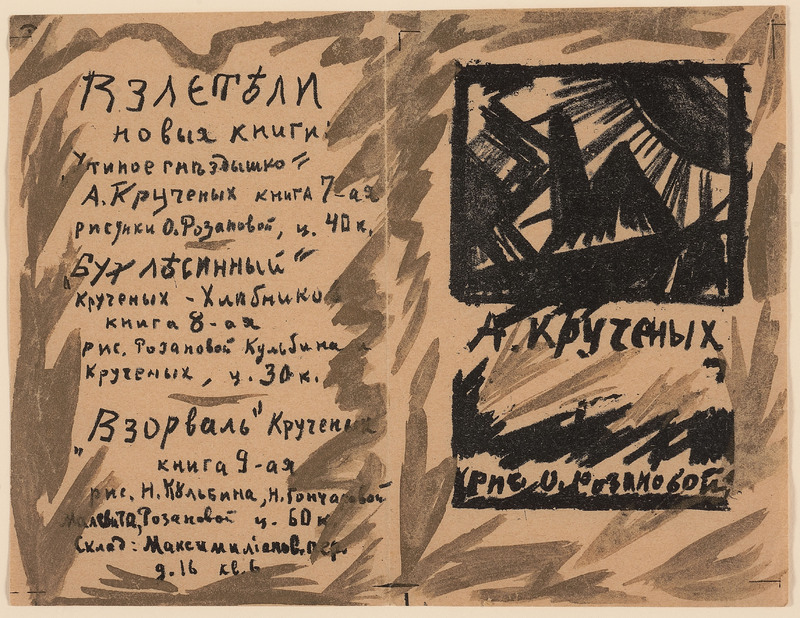 Взлетѣли
новыя книги:
„Утиное гнѣздышко"
А. Крученых книга 7-ая
рисунки О. Розановой, ц. 40 к.
„Бух лѣсинный"
Крученых - Хлебнико
книга 8-ая
рис. Розановой Кульбина и
Крученых, ц. 30 к.
„Взорваль" Крученых
книга 9-ая
рис. Н. Кульбина, Н. Гончаровой
Малевича, Розановой ц. 60 к
Склад: Максимиліанов. пер.
д. 16 кв. 6
А. Крученых
рис. О. Розановой